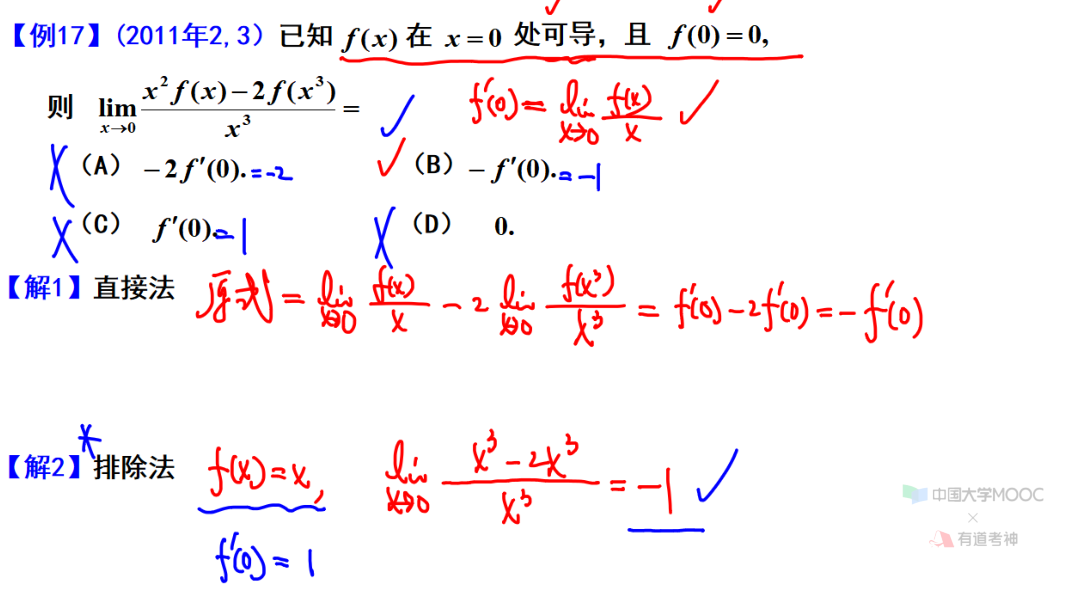 【例17】(2011年2,3) 已知 f(x) 在 x=0 处可导, 且 f(0)=0,
则 lim x→0 (x²f(x)−2f(x³))/x³ = f'(0)=lim x→0 f(x)/x
(A) −2f'(0). =-2 (B) −f'(0). =-1
(C) f'(0). =1 (D) 0.
【解1】直接法 原式 = lim x→0 f(x)/x − 2 lim x→0 f(x³)/x³ = f'(0)−2f'(0) = −f'(0)
【解2】排除法 f(x)=x, lim x→0 (x³−2x³)/x³ = −1
f'(0)=1
中国大学MOOC
×
有道考神